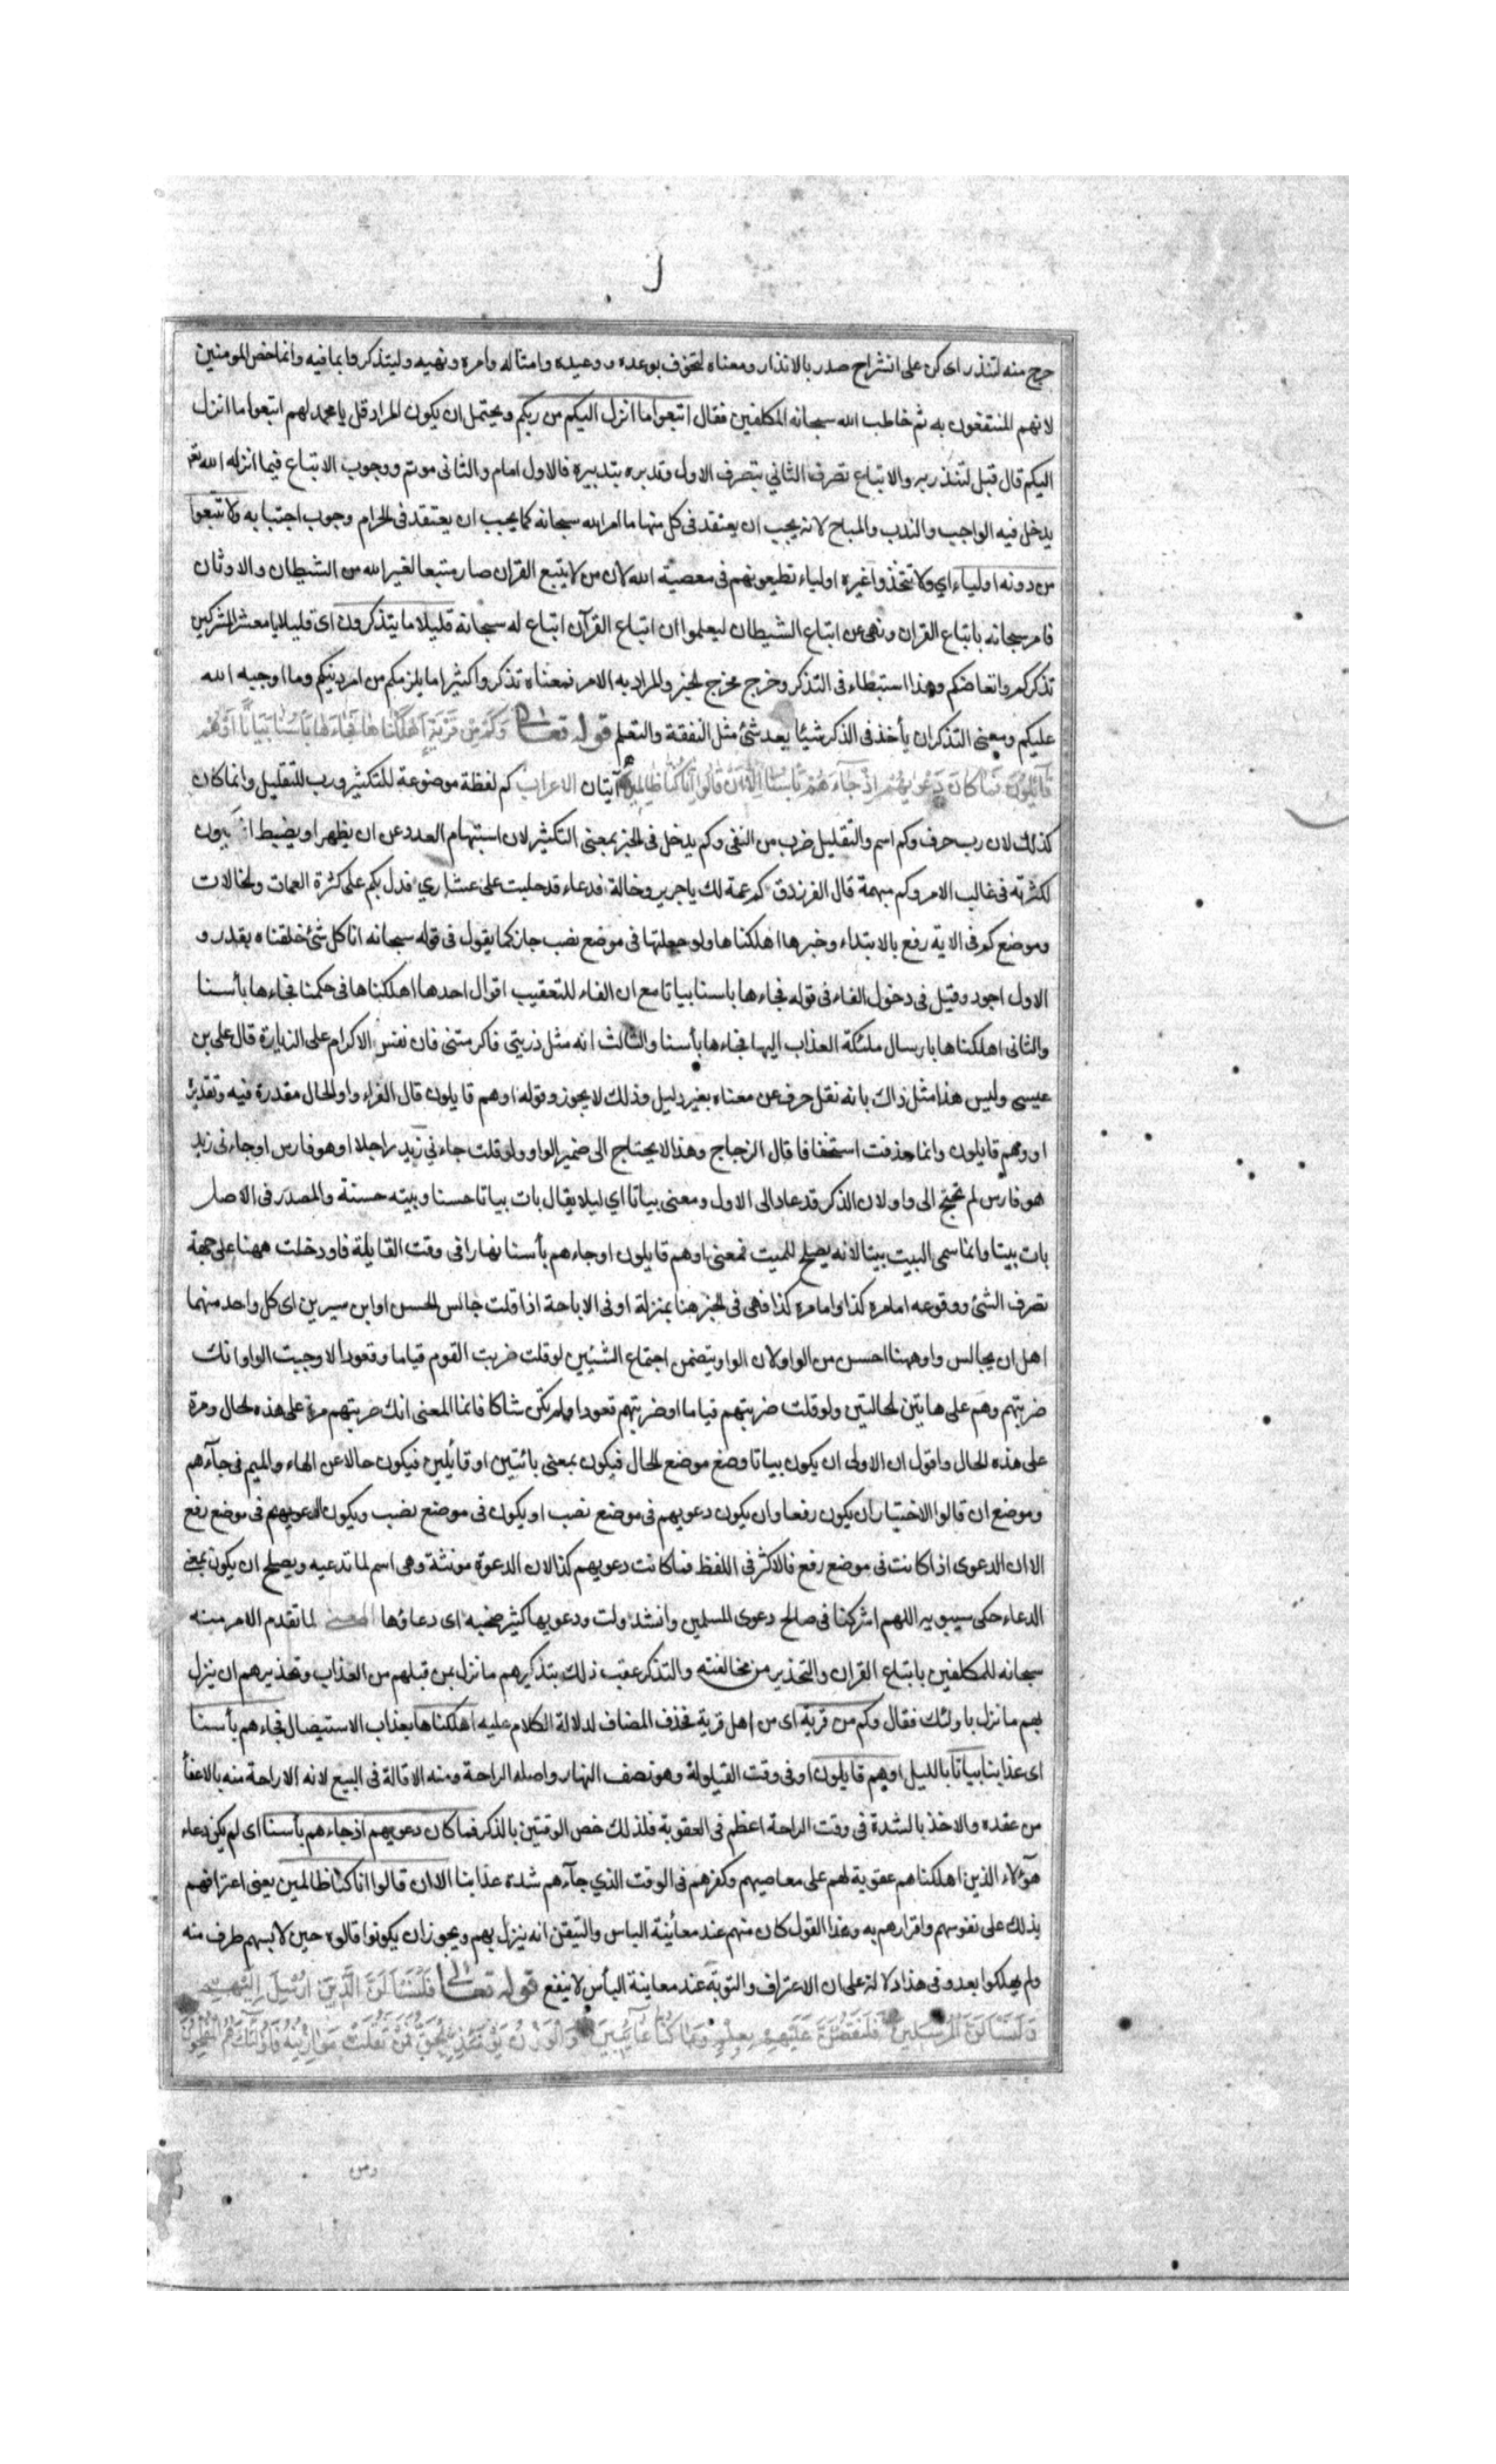 ل
حرج منه لتنذر اى كن على انشراح صدر بالانذار ومعناه لتخوف بوعده ووعيده وامثاله وامره ونهيه وليتذكروا بما فيه وانما خص المومنين
لانهم المنتفعون به ثم خاطب الله سبحانه المكلفين فقال اتبعوا ما انزل اليكم من ربكم ويحتمل ان يكون المراد قل يا محمد لهم اتبعوا ما انزل
اليكم قال قبل لتنذر به والاتباع تصرف الثاني بتصرف الاول وتدبره بتدبيره فالاول امام والثانى موتم ووجوب الاتباع فيما انزله الله تع
يدخل فيه الواجب والندب والمباح لانه يجب ان يعتقد فى كل منها ما امر الله سبحانه كما يجب ان يعتقد فى الحرام وجوب اجتنابه ولا تتبعوا
من دونه اولياء اي ولا تتخذوا غيره اولياء تطيعونهم فى معصية الله لان من لا يتبع القران صار متبعا لغير الله من الشيطان والاوثان
فامر سبحانه باتباع القران ونهى عن اتباع الشيطان ليعلموا ان اتباع القرآن اتباع له سبحانه قليلا ما يتذكرون اى قليلا يا معشر المشركين
تذكركم واتعاضكم وهذا استبطاء فى التذكر وخرج مخرج الخبر والمراد به الامر فمعناه تذكروا كثيرا ما يلزمكم من امر دينكم وما اوجبه الله
عليكم ومعنى التذكر ان يأخذ فى الذكر شيئا بعد شئ مثل التفقه والتعلم قوله تعالى وَكَمْ مِنْ قَرْيَةٍ اَهْلَكْنَاهَا فَجَاءَهَا بَأْسُنَا بَيَاتًا اَوْ هُمْ
قَائِلُونَ فَمَا كَانَ دَعْوٰيهُمْ اِذْ جَاءَهُمْ بَأْسُنَا اِلَّا اَنْ قَالُوا اِنَّا كُنَّا ظَالِمِينَ آيتان الاعراب كم لفظة موضوعة للتكثير ورب للتقليل وانما كان
كذلك لان رب حرف وكم اسم والتقليل ضرب من النفى وكم يدخل فى الخبر بمعنى التكثير لان استبهام العدد عن ان يظهر او يضبط انما يكون
لكثرته فى غالب الامر وكم مبهمة قال الفرزدق كم عمة لك يا جرير وخالة فدعاء قد حلبت على عشاري فدل بكم على كثرة العمات والخالات
وموضع كم فى الاية رفع بالابتداء وخبرها اهلكناها ولو جعلتها فى موضع نصب جاز كما يقول فى قوله سبحانه انا كل شئ خلقناه بقدر و
الاول اجود وقيل فى دخول الفاء فى قوله فجاءها باسنا بياتا مع ان الفاء للتعقيب اقوال احدها اهلكناها فى حكمنا فجاءها بأسنا
والثانى اهلكناها بارسال ملئكة العذاب اليها فجاءها بأسنا والثالث انه مثل زرتنى فاكرمتنى فان نفس الاكرام على الزيارة قال على بن
عيسى وليس هذا مثل ذاك بانه نقل حرف عن معناه بغير دليل وذلك لا يجوز وقوله او هم قايلون قال الفراء واو الحال مقدرة فيه وتقديره
او وهم قايلون وانما حذفت استخفافا قال الزجاج وهذا لا يحتاج الى ضمير الواو ولو قلت جاءني زيد راجلا او هو فارس او جاءنى زيد
هو فارس لم تحتج الى واو لان الذكر قد عاد الى الاول ومعنى بياتا اي ليلا يقال بات بياتا حسنا وبيته حسنة والمصدر فى الاصل
بات بيتا وانما سمى البيت بيتا لانه يصلح للمبيت فمعنى او هم قايلون او جاءهم بأسنا نهارا فى وقت القايلة فاو دخلت ههنا على جهة
تصرف الشئ ووقوعه اما مرة كذا واما مرة كذا فهى فى الخبر هنا بمنزلة او فى الاباحة اذا قلت جالس الحسن او ابن سيرين اى كل واحد منهما
اهل ان يجالس واو ههنا احسن من الواو لان الواو يتضمن اجتماع الشيئين لو قلت ضربت القوم قياما وقعودا لاوجبت الواو انك
ضربتهم وهم على هاتين الحالتين ولو قلت ضربتهم قياما او ضربتهم قعودا ولم تكن شاكا فانما المعنى انك ضربتهم مرة على هذه الحال ومرة
على هذه الحال واقول ان الاولى ان يكون بياتا وضع موضع الحال فيكون بمعنى بائتين او قائلين فيكون حالا عن الهاء والميم فى جآءهم
وموضع ان قالوا الاختيار ان يكون رفعا وان يكون دعويهم فى موضع نصب او يكون فى موضع نصب ويكون الدعويهم فى موضع رفع
الا ان الدعوى اذا كانت فى موضع رفع فالاكثر فى اللفظ فما كانت دعويهم كذا لان الدعوة مونثة وهى اسم لما تدعيه ويصلح ان يكون بمعنى
الدعاء حكى سيبويه اللهم اشركنا فى صالح دعوى المسلمين وانشد ولت ودعويها كثير صخبه اى دعاؤها المعنى لما تقدم الامر منه
سبحانه للمكلفين باتباع القران والتحذير من مخالفته والتذكر عقب ذلك بتذكيرهم ما نزل بمن قبلهم من العذاب وتحذيرهم ان ينزل
بهم ما نزل باولئك فقال وكم من قرية اى من اهل قرية فحذف المضاف لدلالة الكلام عليه اهلكناها بعذاب الاستيصال فجاءهم بأسنا
اى عذابنا بياتا بالليل او هم قايلون او فى وقت القيلولة وهو نصف النهار واصله الراحة ومنه الاقالة فى البيع لانه الاراحة منه بالاعفأ
من عقده والاخذ بالشدة فى وقت الراحة اعظم فى العقوبة فلذلك خص الوقتين بالذكر فما كان دعويهم اذ جاءهم بأسنا اى لم يكن دعاء
هؤلاء الذين اهلكناهم عقوبة لهم على معاصيهم وكفرهم فى الوقت الذي جآءهم شدة عذابنا الا ان قالوا انا كنا ظالمين يعنى اعترافهم
بذلك على نفوسهم واقرارهم به وهذا القول كان منهم عند معاينة الباس والتيقن انه ينزل بهم ويجوز ان يكونوا قالوه حين لابسهم طرف منه
ولم يهلكوا بعد وفى هذا دلالة على ان الاعتراف والتوبة عند معاينة البأس لا ينفع قوله تعالى فَلَنَسْأَلَنَّ الَّذِينَ اُرْسِلَ اِلَيْهِمْ
وَلَنَسْأَلَنَّ الْمُرْسَلِينَ فَلَنَقُصَّنَّ عَلَيْهِمْ بِعِلْمٍ وَمَا كُنَّا غَائِبِينَ وَالْوَزْنُ يَوْمَئِذٍ الْحَقُّ فَمَنْ ثَقُلَتْ مَوَازِينُهُ فَاُولٰئِكَ هُمُ الْمُفْلِحُونَ
ومن